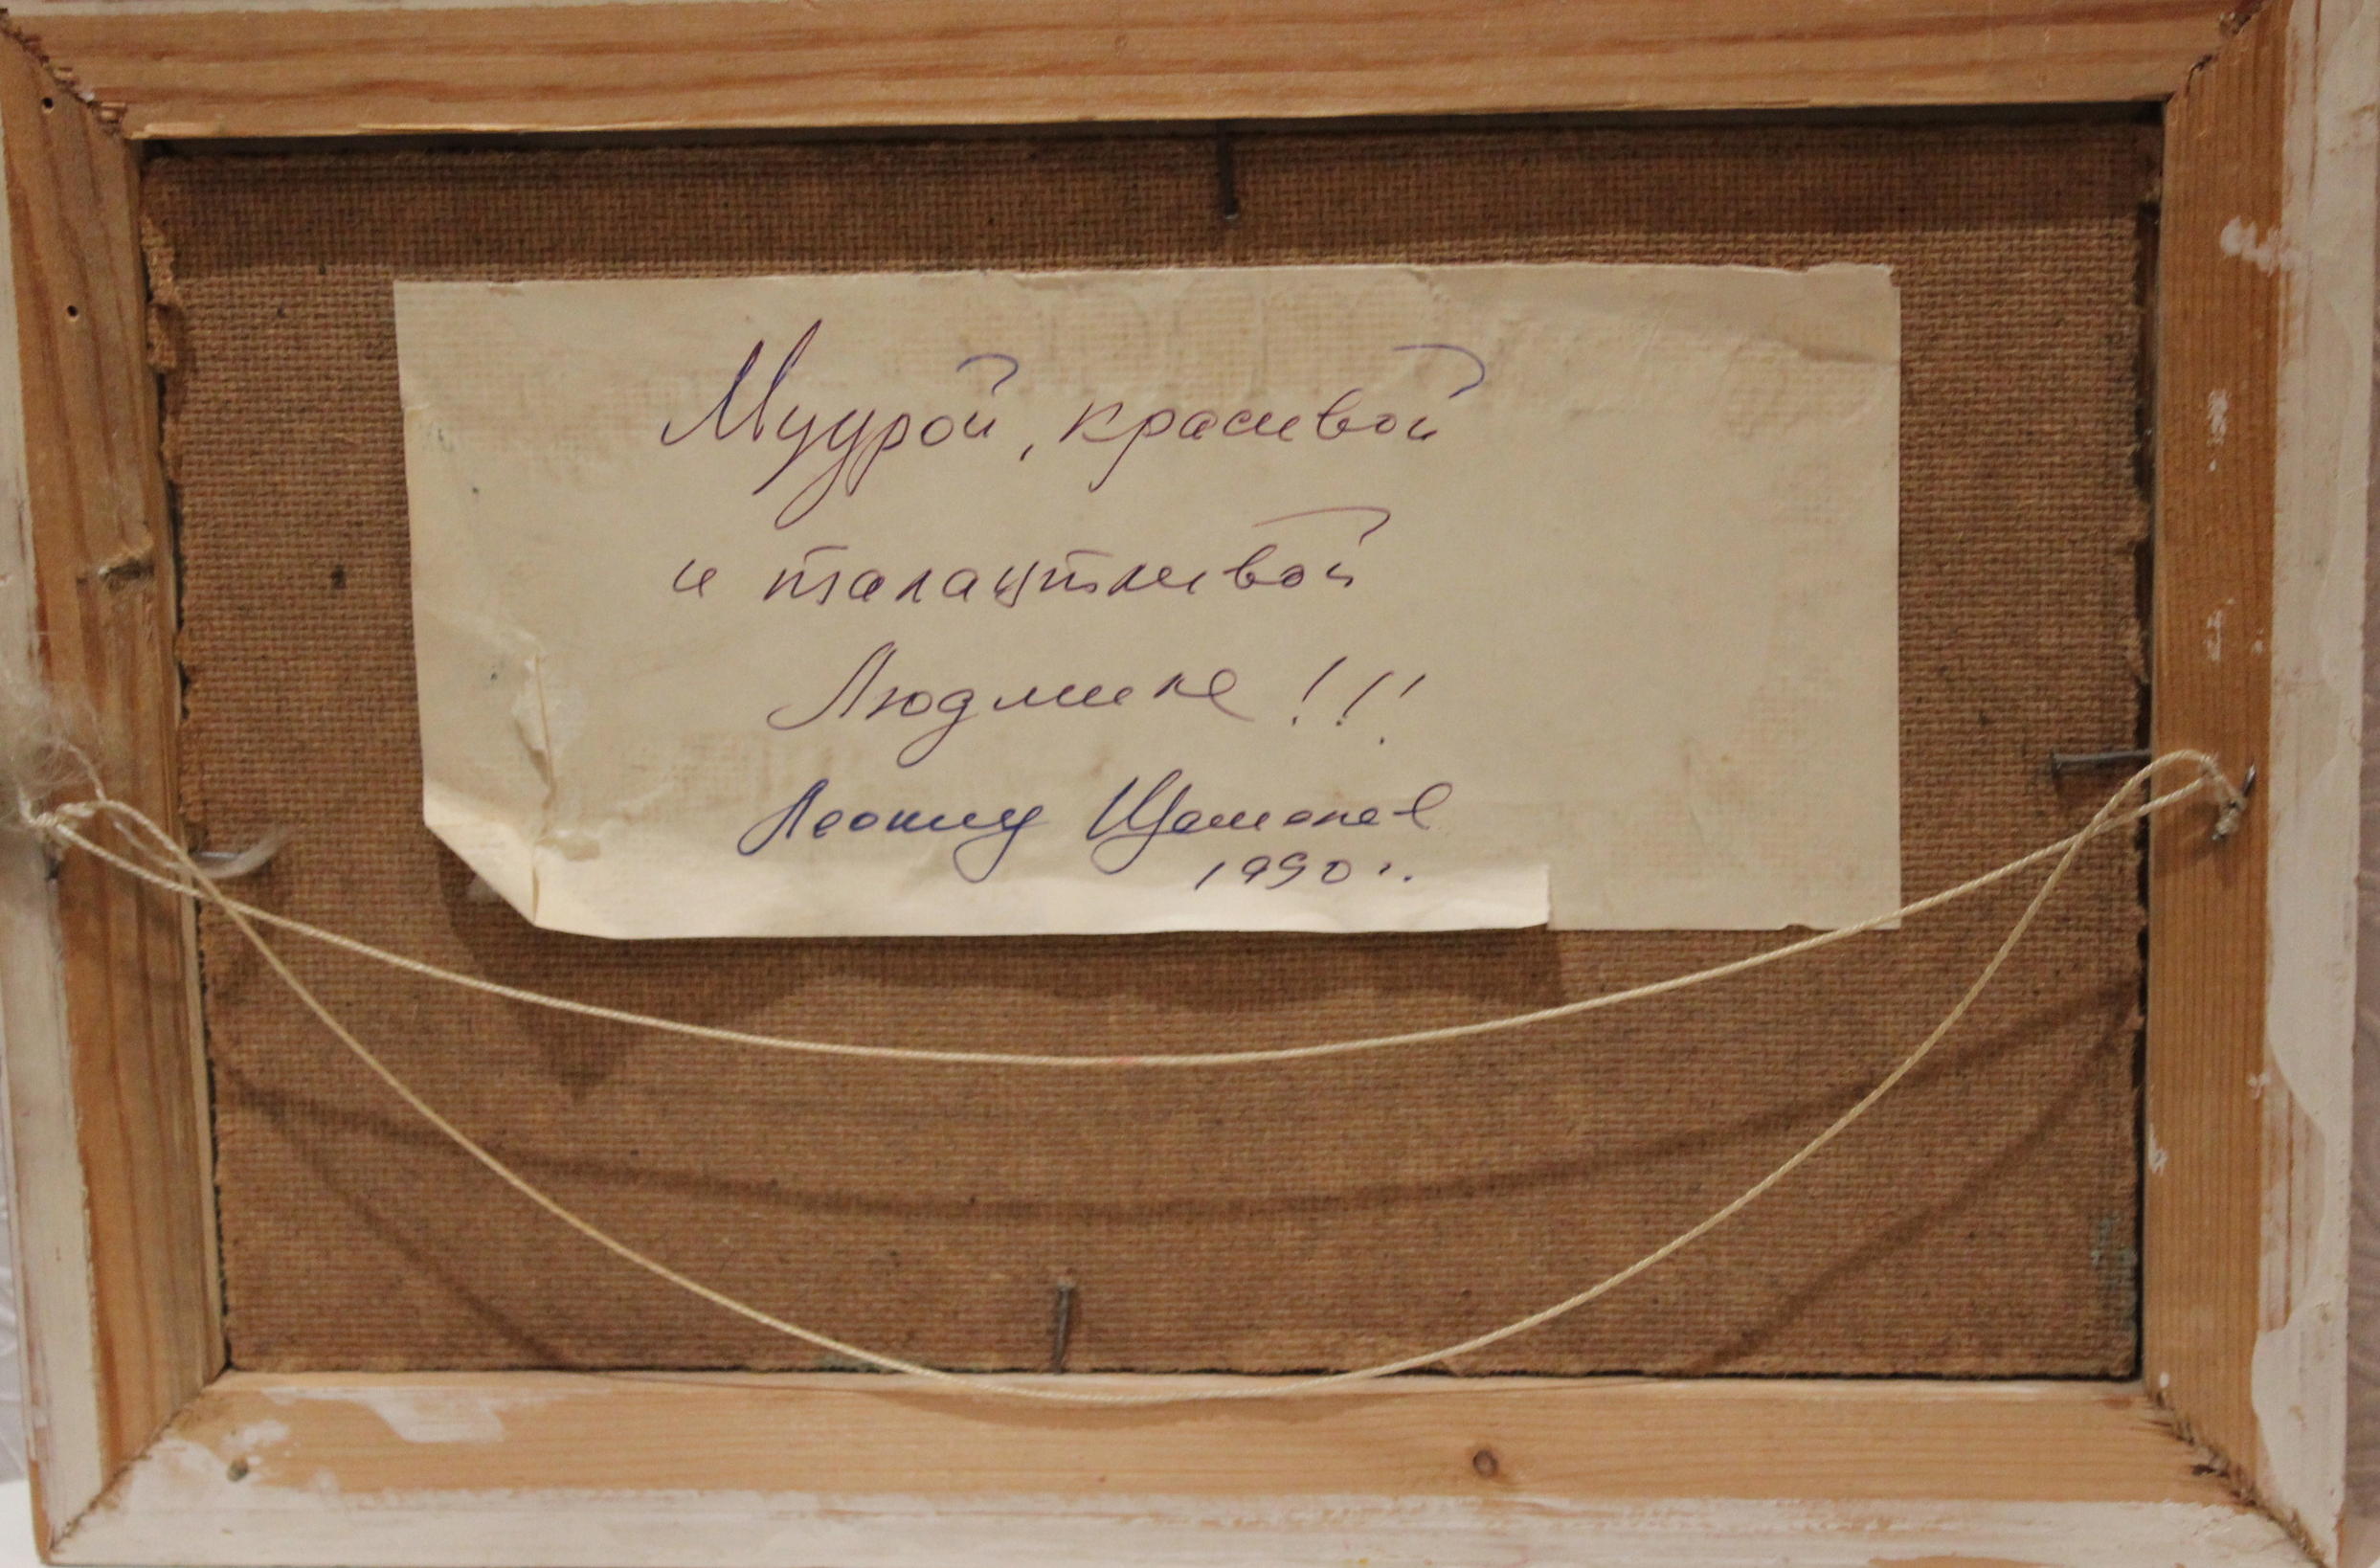 Мудрой, красивой
и талантливой
Людмиле!!!
Леонид
1990 г.